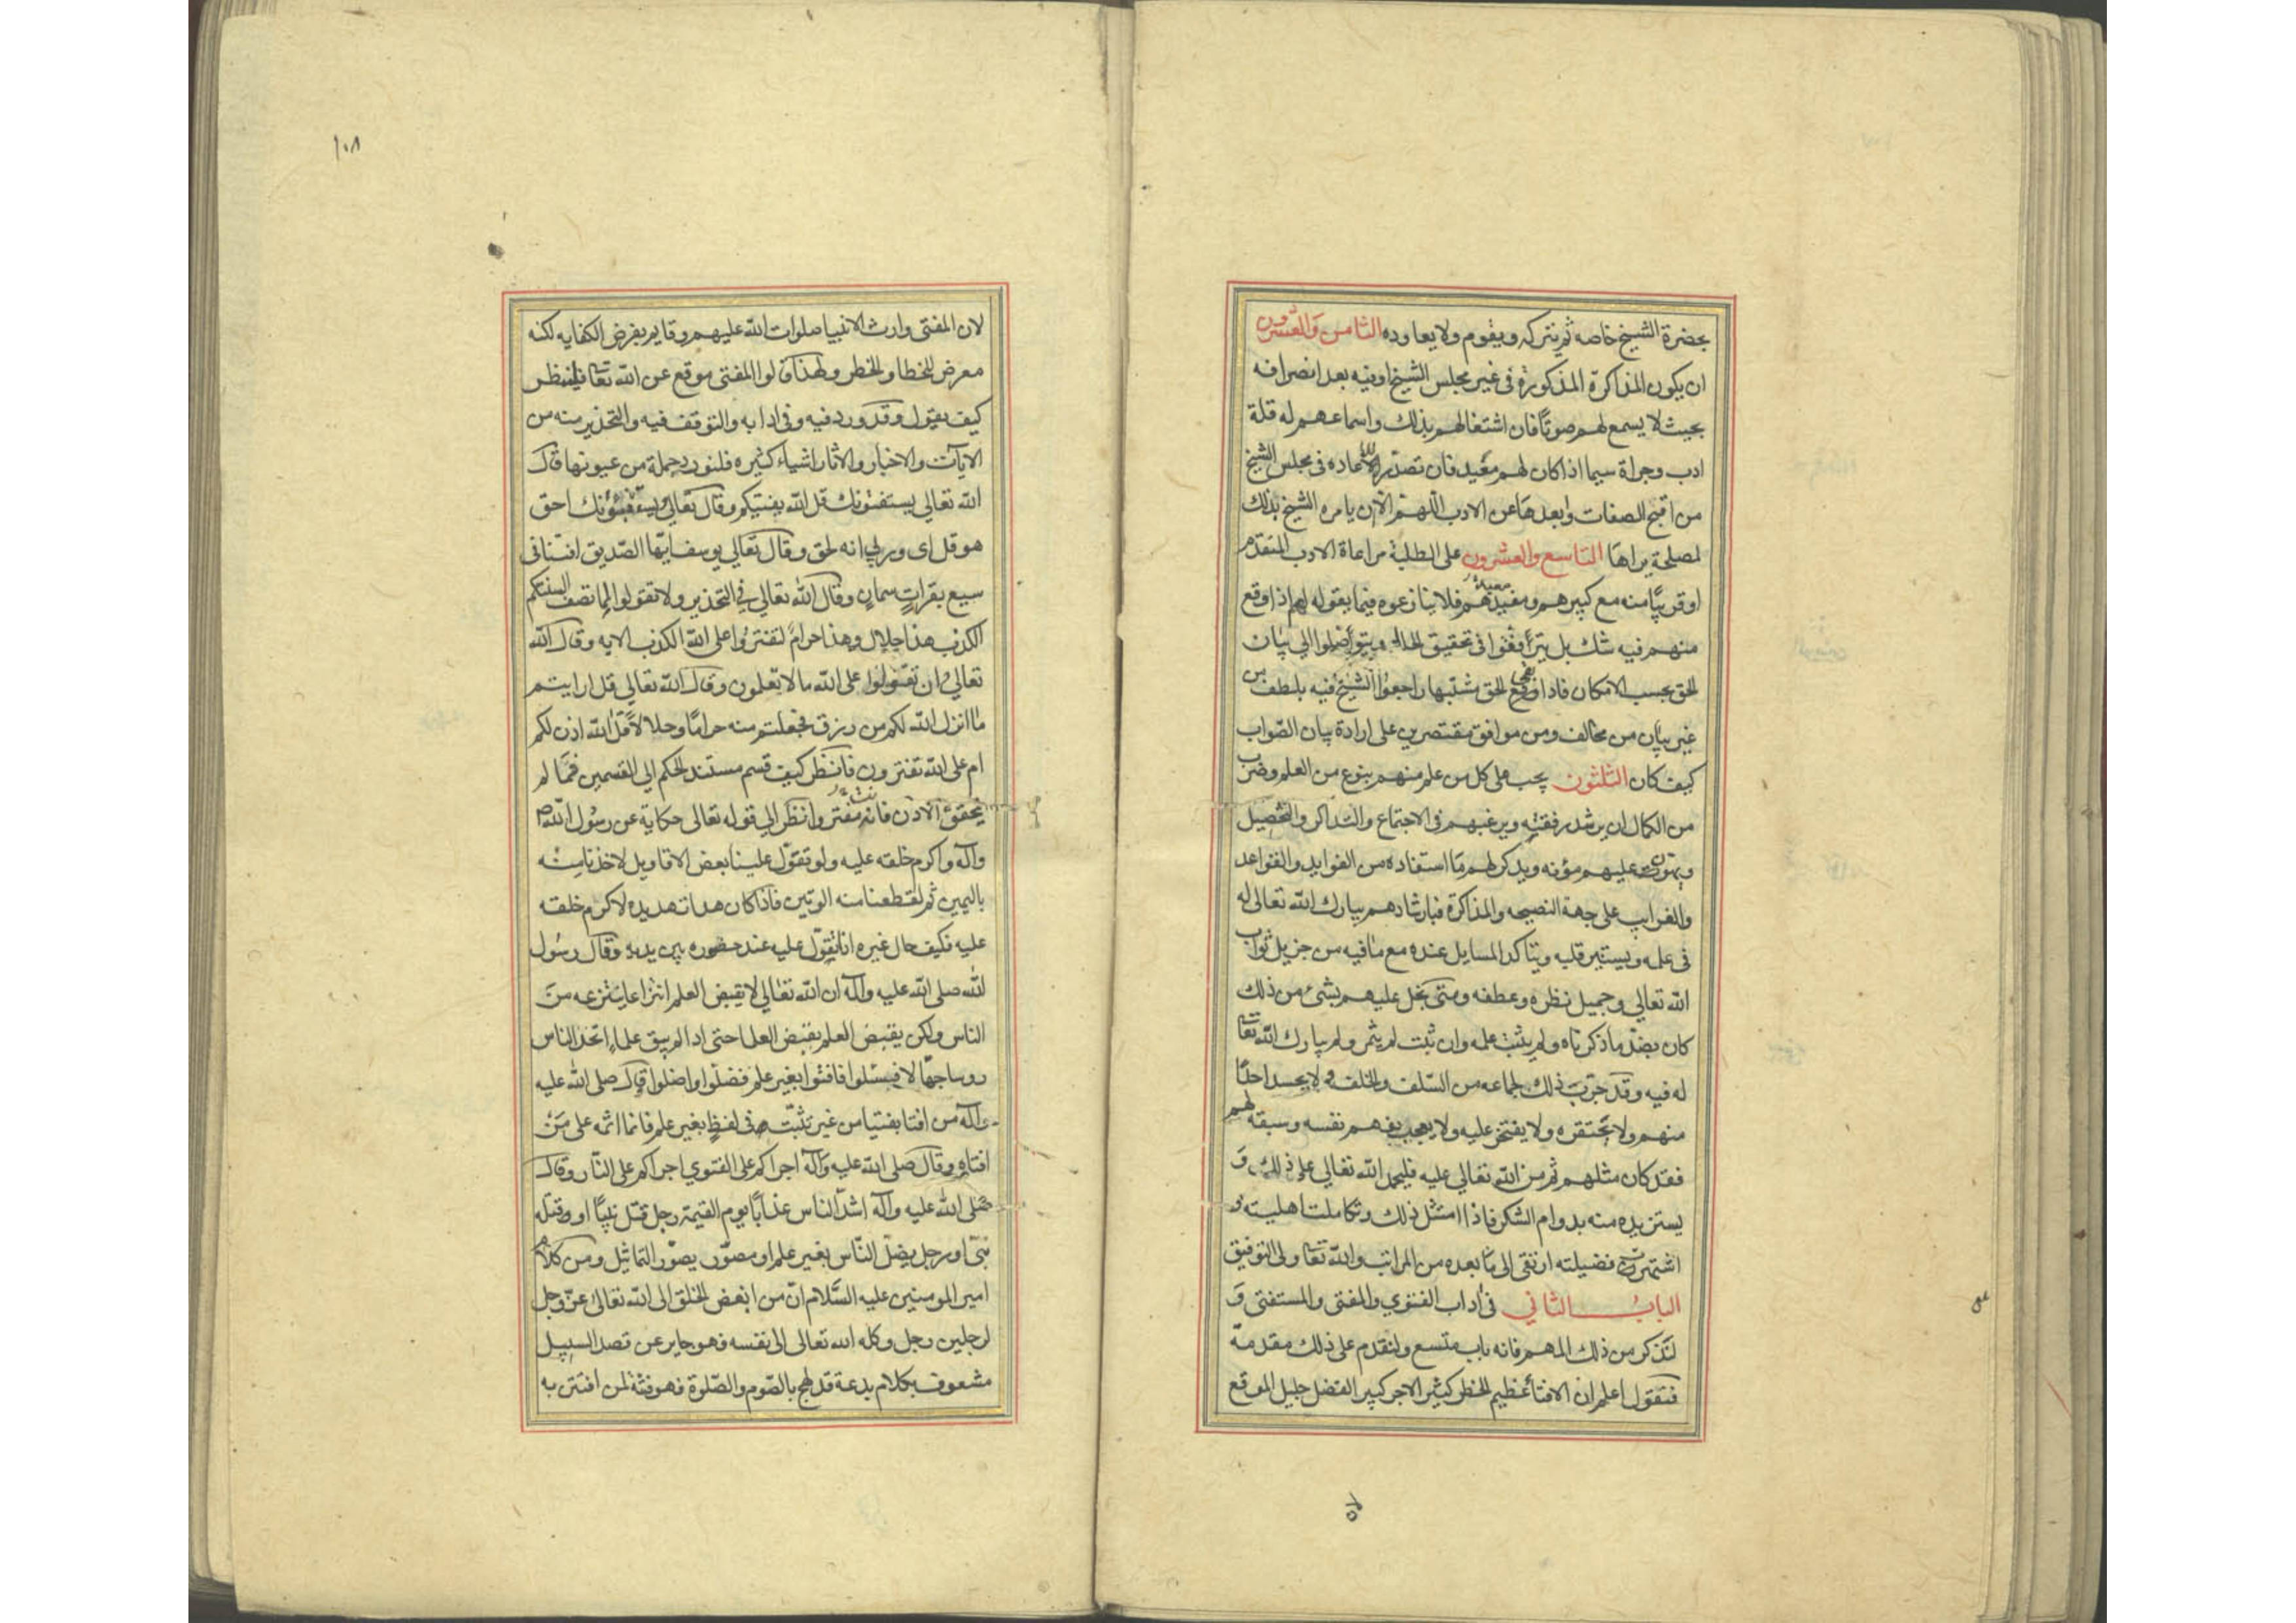 بحضرة الشيخ خاصه ثم يتركه ويقوم ولا يعاوده الثامن والعشرون
ان يكون المذاكرة المذكورة فى غير مجلس الشيخ او فيه بعد انصرافه
بحيث لا يسمع لهم صوتًا فان اشتغالهم بذلك واسماعهم له قلة
ادب وجراة سيما اذا كان لهم معيد فان تصدّر للاعاده فى مجلس الشيخ
من اقبح الصفات وابعدها عن الادب اللهمّ الا ان يامره الشيخ بذلك
لمصلحة يراها التاسع والعشرون على الطلبة مراعاة الادب المتقدّم
او قريبًا منه مع كبيرهم ومعيدهم فلا ينازعوه فيما يقوله لهم اذا وقع
منهم فيه شك بل يترافقوا فى تحقيق الحال ويتواصلوا الى بيان
الحق بحسب الامكان فاذا بقى الحق مشتبها راجعوا الشيخ فيه بلطف من
غير بيان من مخالف ومن موافق مقتصرين على ارادة بيان الصّواب
كيف كان الثلثون يجب على كل من علم منهم بنوع من العلم وضرب
من الكمال ان يرشد رفقته ويرغبهم فى الاجتماع والتذاكر والتحصيل
ويهوّن عليهم مؤنه ويذكر لهم ما استفاده من الفوايد والقواعد
والغرايب على جهة النصيحه والمذاكرة فبارشادهم يبارك الله تعالى له
فى علمه ويستنير قلبه ويتاكد المسايل عنده مع ما فيه من جزيل ثواب
الله تعالى وجميل نظره وعطفه ومتى بخل عليهم بشئ من ذلك
كان بضدّ ما ذكرناه ولم يثبت علمه وان ثبت لم يثمر ولم يبارك الله تعا
له فيه وقد جرّب ذلك لجماعه من السّلف والخلف ولا يحسد احدًا
منهم ولا يحتقره ولا يفتخر عليه ولا يعجب بفهم نفسه وسبقه لهم
فقد كان مثلهم ثم منّ الله تعالى عليه فليحمد الله تعالى على ذلك و
يستزيده منه بدوام الشكر فاذا امتثل ذلك وتكاملت اهليته و
اشتهرت فضيلته ارتقى الى ما بعده من المراتب والله تعا ولى التوفيق
الباب الثاني فى اداب الفتوي والمفتى والمستفتى و
لنذكر من ذلك المهم فانه باب متسع ولنقدم على ذلك مقدمة
فنقول اعلم ان الافتا عظيم الخطر كثير الاجر كبير الفضل جليل الموقع
١٠٨
لان المفتى وارث الانبيا صلوات الله عليهم وقايم بفرض الكفايه لكنه
معرض للخطا والخطر ولهذا قالوا المفتى موقع عن الله تعا فلينظر
كيف يقول وقد ورد فيه وفى ادابه والتوقف فيه والتحذير منه من
الآيات والاخبار والاثار اشياء كثيره فلنورد جملة من عيونها قال
الله تعالى يستفتونك قل الله يفتيكم وقال تعالى ويستنبئونك احق
هو قل اى وربي انه لحق وقال تعالي يوسف ايّها الصّديق افتنا فى
سبع بقرات سمان وقال الله تعالي في التحذير ولا تقولوا لما تصف السنتكم
الكذب هذا حلال وهذا حرام لتفتروا على الله الكذب الايه وقال الله
تعالي وان تقولوا على الله ما لا تعلمون وقال الله تعالي قل ارايتم
ما انزل الله لكم من رزق فجعلتم منه حرامًا وحلالاً قل الله اذن لكم
ام على الله تفترون فانظر كيف قسم مستند الحكم الي القسمين فما لم
يتحقق الاذن فانت مفتر وانظر الي قوله تعالى حكاية عن رسول الله ص
وآله واكرم خلقه عليه ولو تقوّل علينا بعض الاقاويل لاخذنا منه
باليمين ثم لقطعنا منه الوتين فاذا كان هذا تهديده لاكرم خلقه
عليه فكيف حال غيره اذا تقوّل عليه عند حضوره بين يديه وقال رسول
الله صلى الله عليه وآله ان الله تعالي لا يقبض العلم انتزاعا ينتزعه من
الناس ولكن يقبض العلم بقبض العلما حتى اذا لم يبق علماء اتخذ الناس
روسا جهّالا فسئلوا فافتوا بغير علم فضلّوا واضلوا وقال صلى الله عليه
وآله من افتا بفتيا من غير تثبّت وفى لفظ بغير علم فانما اثمه على من
افتاه وقال صلى الله عليه وآله اجراكم على الفتوي اجراكم على النّار وقال
صلى الله عليه وآله اشدّ الناس عذابًا يوم القيمة رجل قتل نبيًّا او قتله
نبىّ او رجل يضلّ النّاس بغير علم او مصوّر يصوّر التماثيل ومن كلام
امير المومنين عليه السّلام انّ من ابغض الخلق الى الله تعالى عزّ وجل
لرجلين رجل وكله الله تعالى الى نفسه فهو جاير عن قصد السبيل
مشعوف بكلام بدعة قد لهج بالصّوم والصّلوة فهو فتنة لمن افتتن به